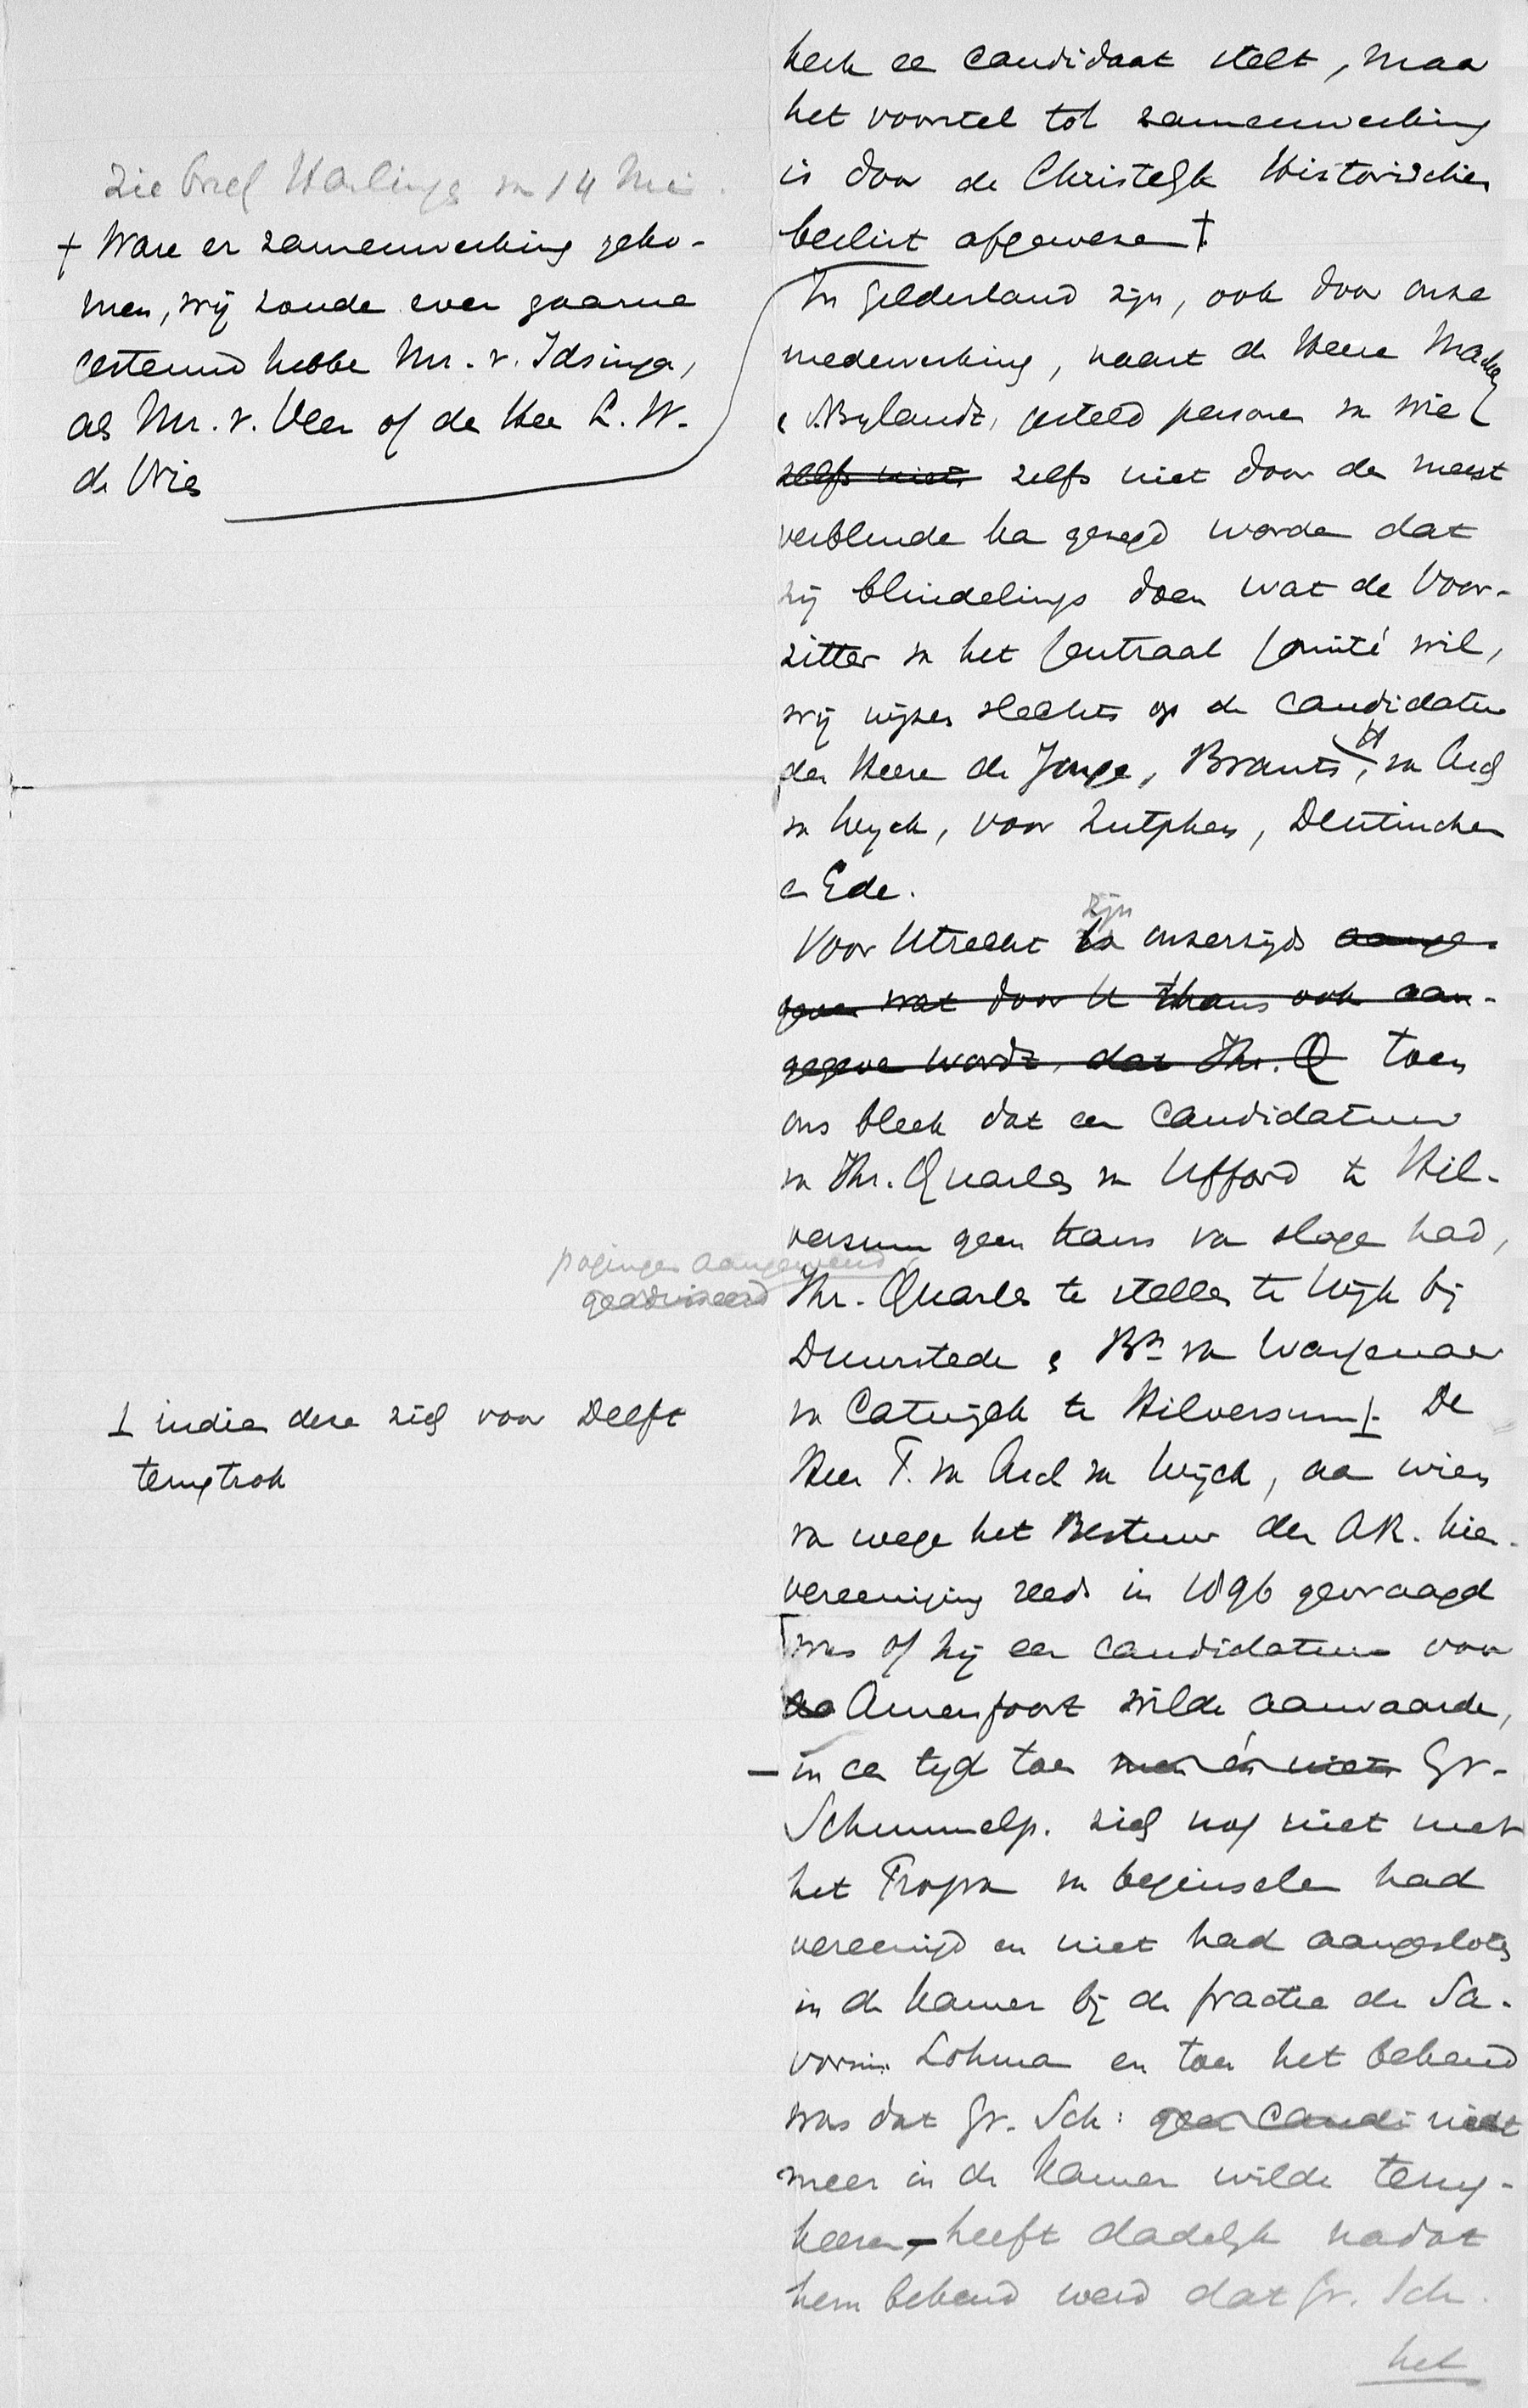 zie brief Harlinge va 14 Mei.
† Ware er zamenwerking geko-
men, wij zoude even gaarne
gesteund hebbe Mr. v. Idsinga,
als Mr. v. Veen of de Heer L. W.
de Vries
kerk ee candidaat stelt, maa
het voorstel tot zamenwerking
is door de Christelijk Historischen
beslist afgeweze †.
In Gelderland zijn, ook door onze
medewerking, naast de Heere Mackay
& v. Bylandt, gesteld persone va wie
zelfs niet zelfs niet door de meest
verblinde ka gezegd worde dat
zij blindelings doen wat de Voor-
zitter va het Centraal Comité wil,
wij wijzen slechts op de candidature
der Heere de Jonge, Brants, va Asch
va Wyck, voor Zutphen, Deutinchem
e Ede.
Voor Utrecht is zijn onzerzijds aange-
geven wat door U thans ook aan-
gegeve wordt, dat Jhr. Q toen
ons bleek dat ee candidatuur
va Jhr. Quarles va Ufford te Hil-
versum geen kans va slage had,
pogingen aangewend
geadviseerd Jhr. Quarles te stelle te Wijk bij
Duurstede & Bn va Wassenaer
va Catwijck te Hilversum ⊥. De
⊥ indien deze zich voor Delft
terugtrok
Heer T. va Asch va Wijck, aa wien
va wege het Bestuur der AR. kies-
vereeniging reeds in 1896 gevraagd
was of hij ee candidatuur voor
Amersfoort wilde aanvaarde,
— in ee tijd toe Gr.
Schimmelp. zich nog niet met
het Progra va beginsele had
vereenigd en niet had aangesloten
in de Kamer bij de fractie de Sa-
vornin Lohma en toe het bekend
was dat Gr. Sch: geen candi niet
meer in de Kamer wilde terug-
keere, — heeft dadelijk nadat
hem bekend werd dat Gr. Sch.
het